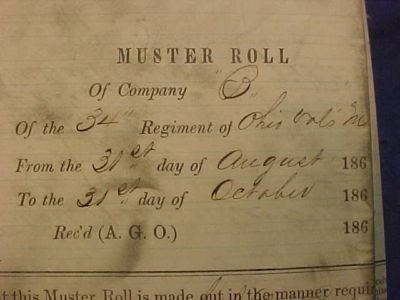 MUSTER ROLL
Of Company "B"
Of the 34th Regiment of Ohio Vols
From the 31st day of August 186
To the 31st day of October 186
Rec'd (A. G. O.) 186
t this Muster Roll is made out in the manner requi